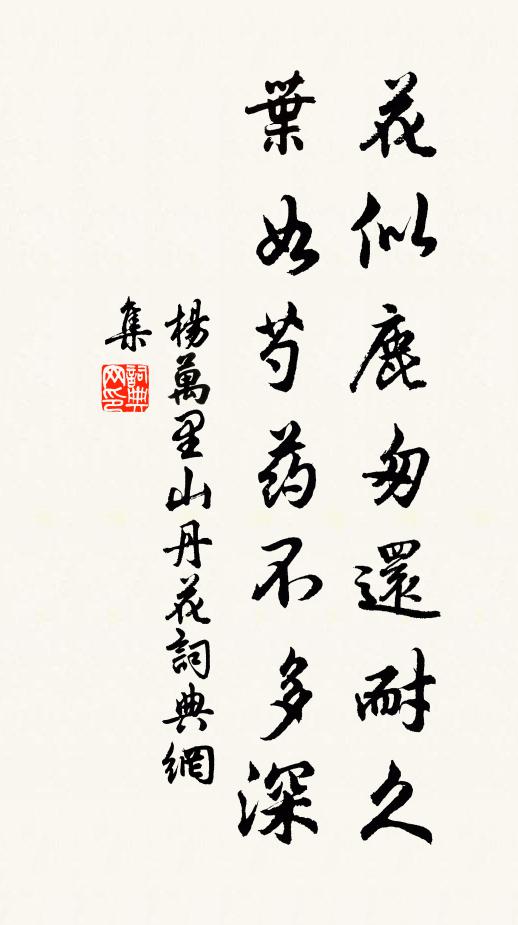 花似鹿匆還耐久
葉如芍药不多深
楊萬里山丹花詞典網
集
詞典
网印